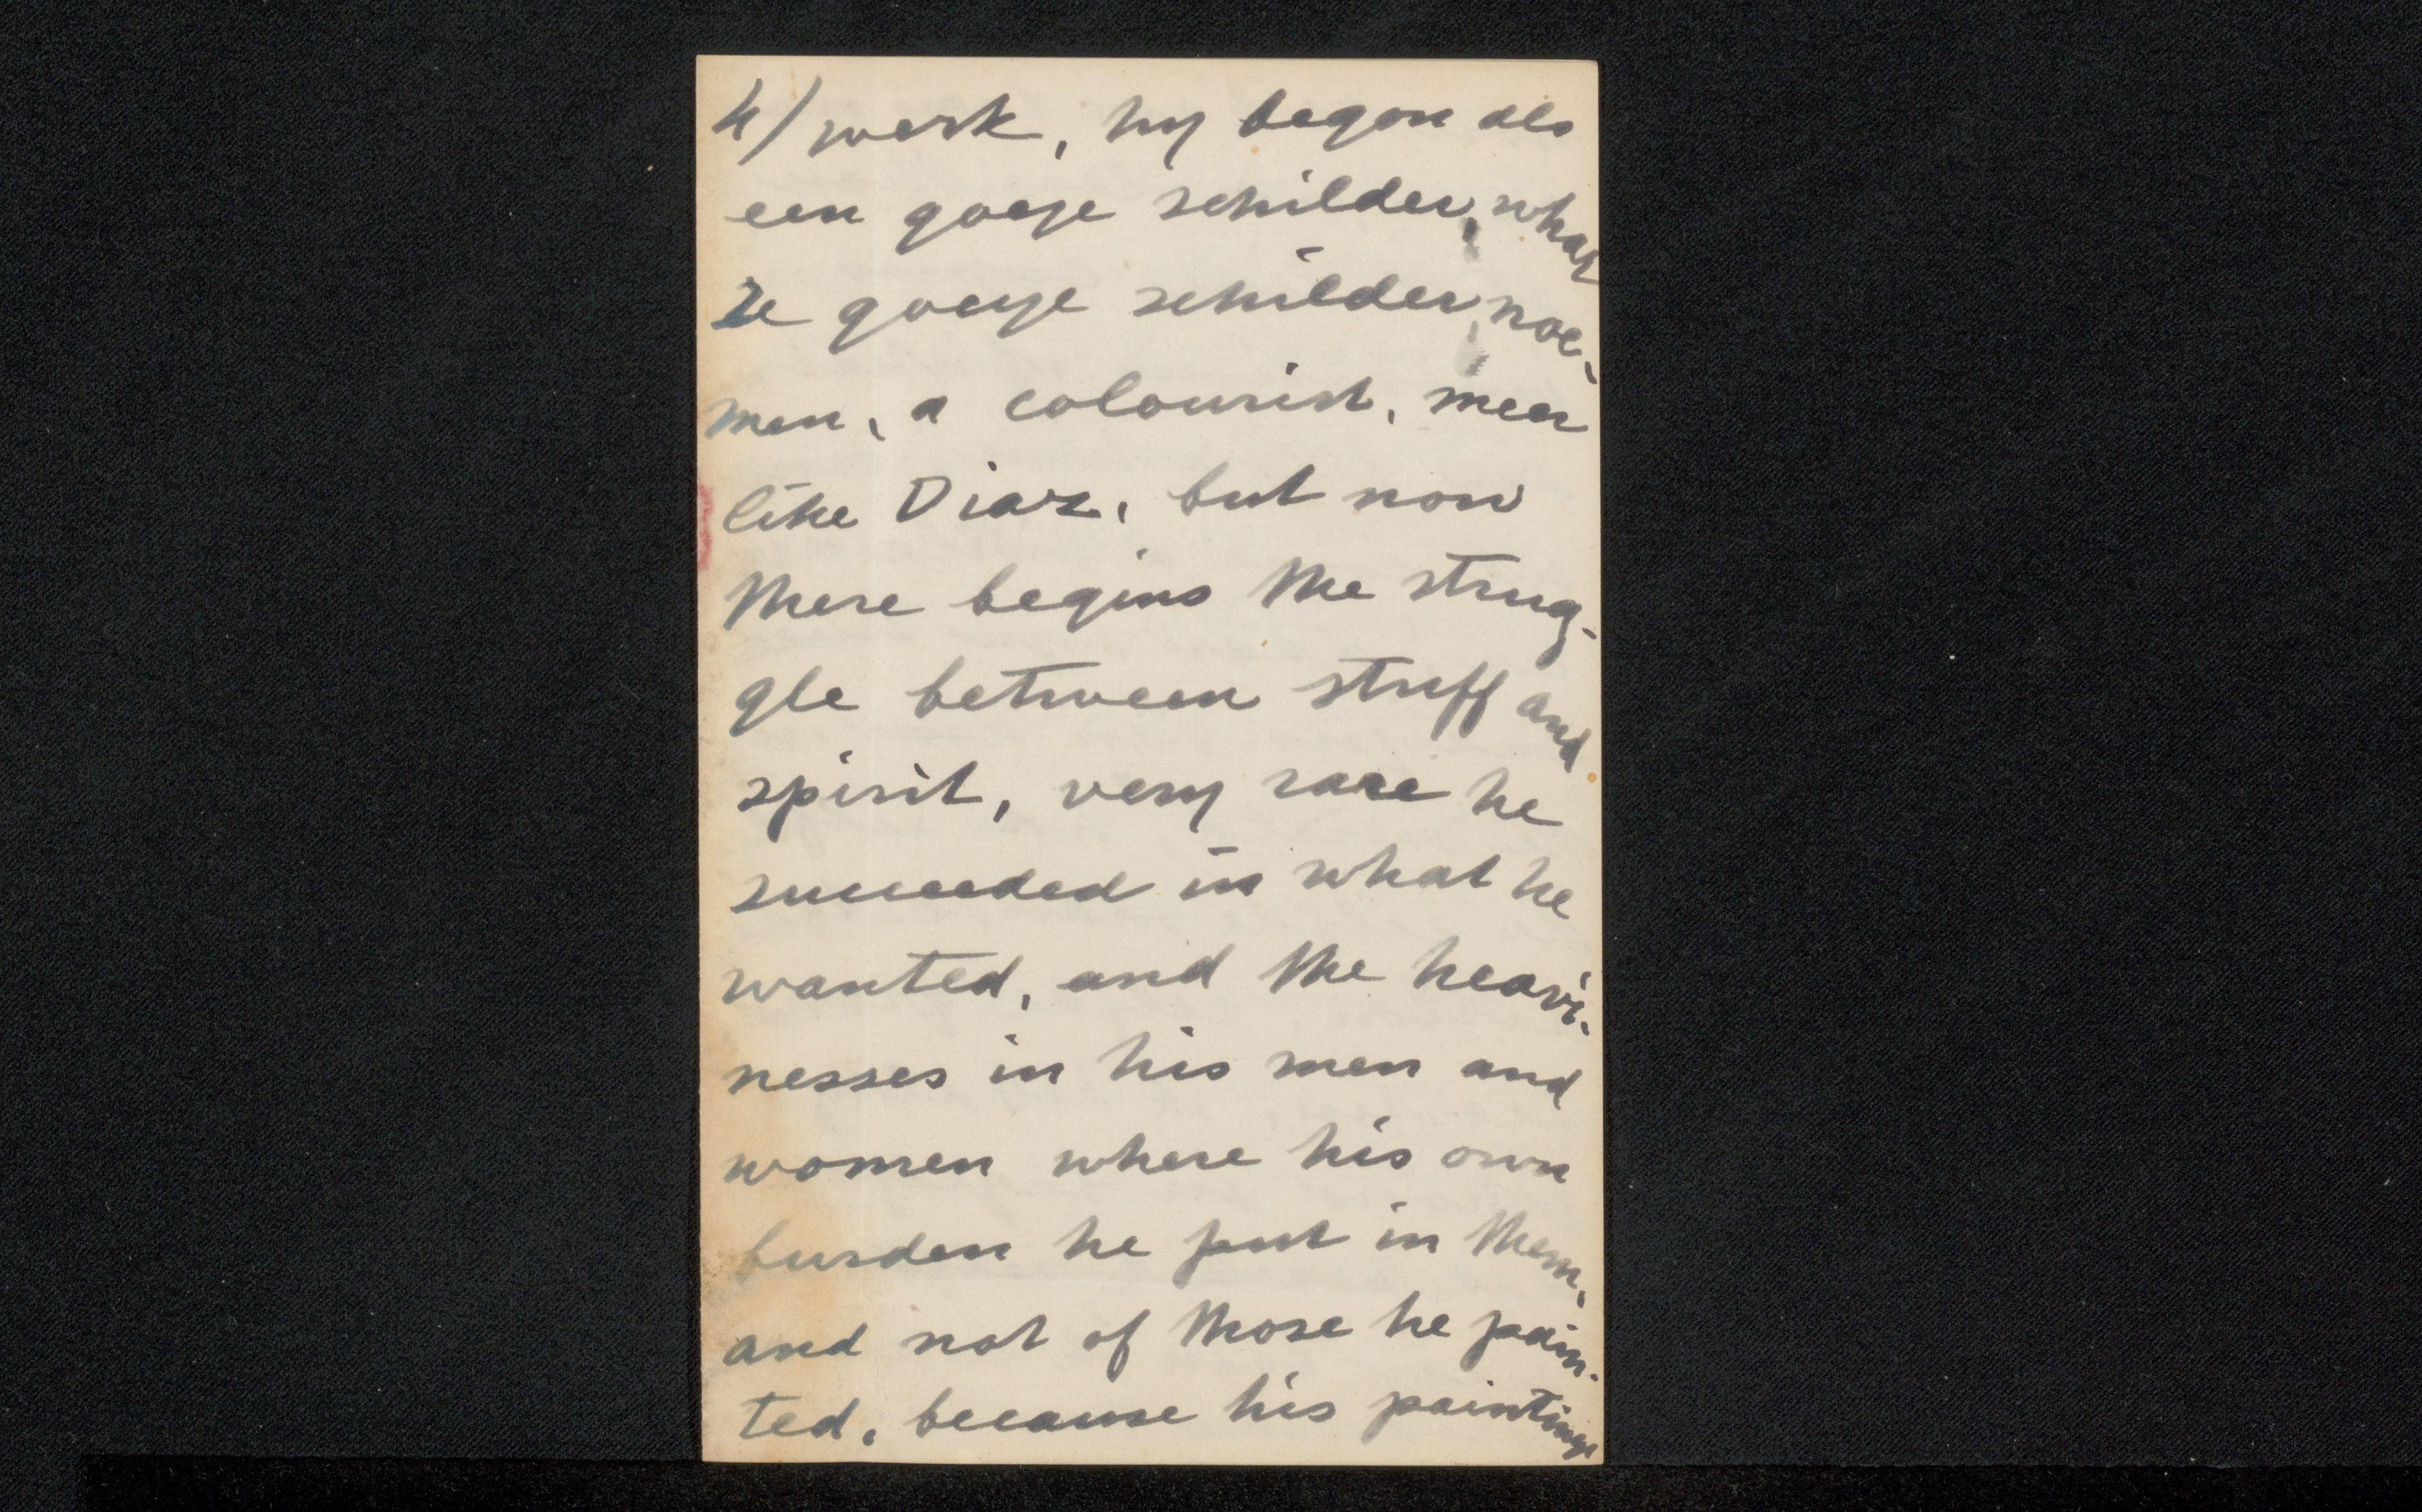 4/ werk, hy begon als
een goeje schilder, what
ze goeije schilder, noe-
men, a colourist, meer
like Diaz, but now
there begins the strug-
gle between stuff and
spirit, very rare he
succeeded in what he
wanted, and the heavi-
nesses in his men and
women where his own
burden he put in them,
and not of those he pain-
ted, because his paintings